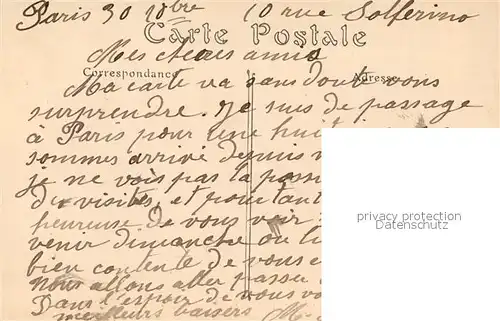 Paris 30 10bre 10 rue Solférino
Carte Postale
Mes chères amies
Correspondance Adresse
Ma carte va sans doute vous
surprendre. Je suis de passage
à Paris pour une huit
sommes arrivé depuis
je ne vois pas la
de visites, et pourtant
heureuse de vous voir
venir dimanche ou lu
bien contente de vous
nous allons aller passer
Dans l'espoir de vous vo
meilleurs baisers M.
privacy protection
Datenschutz